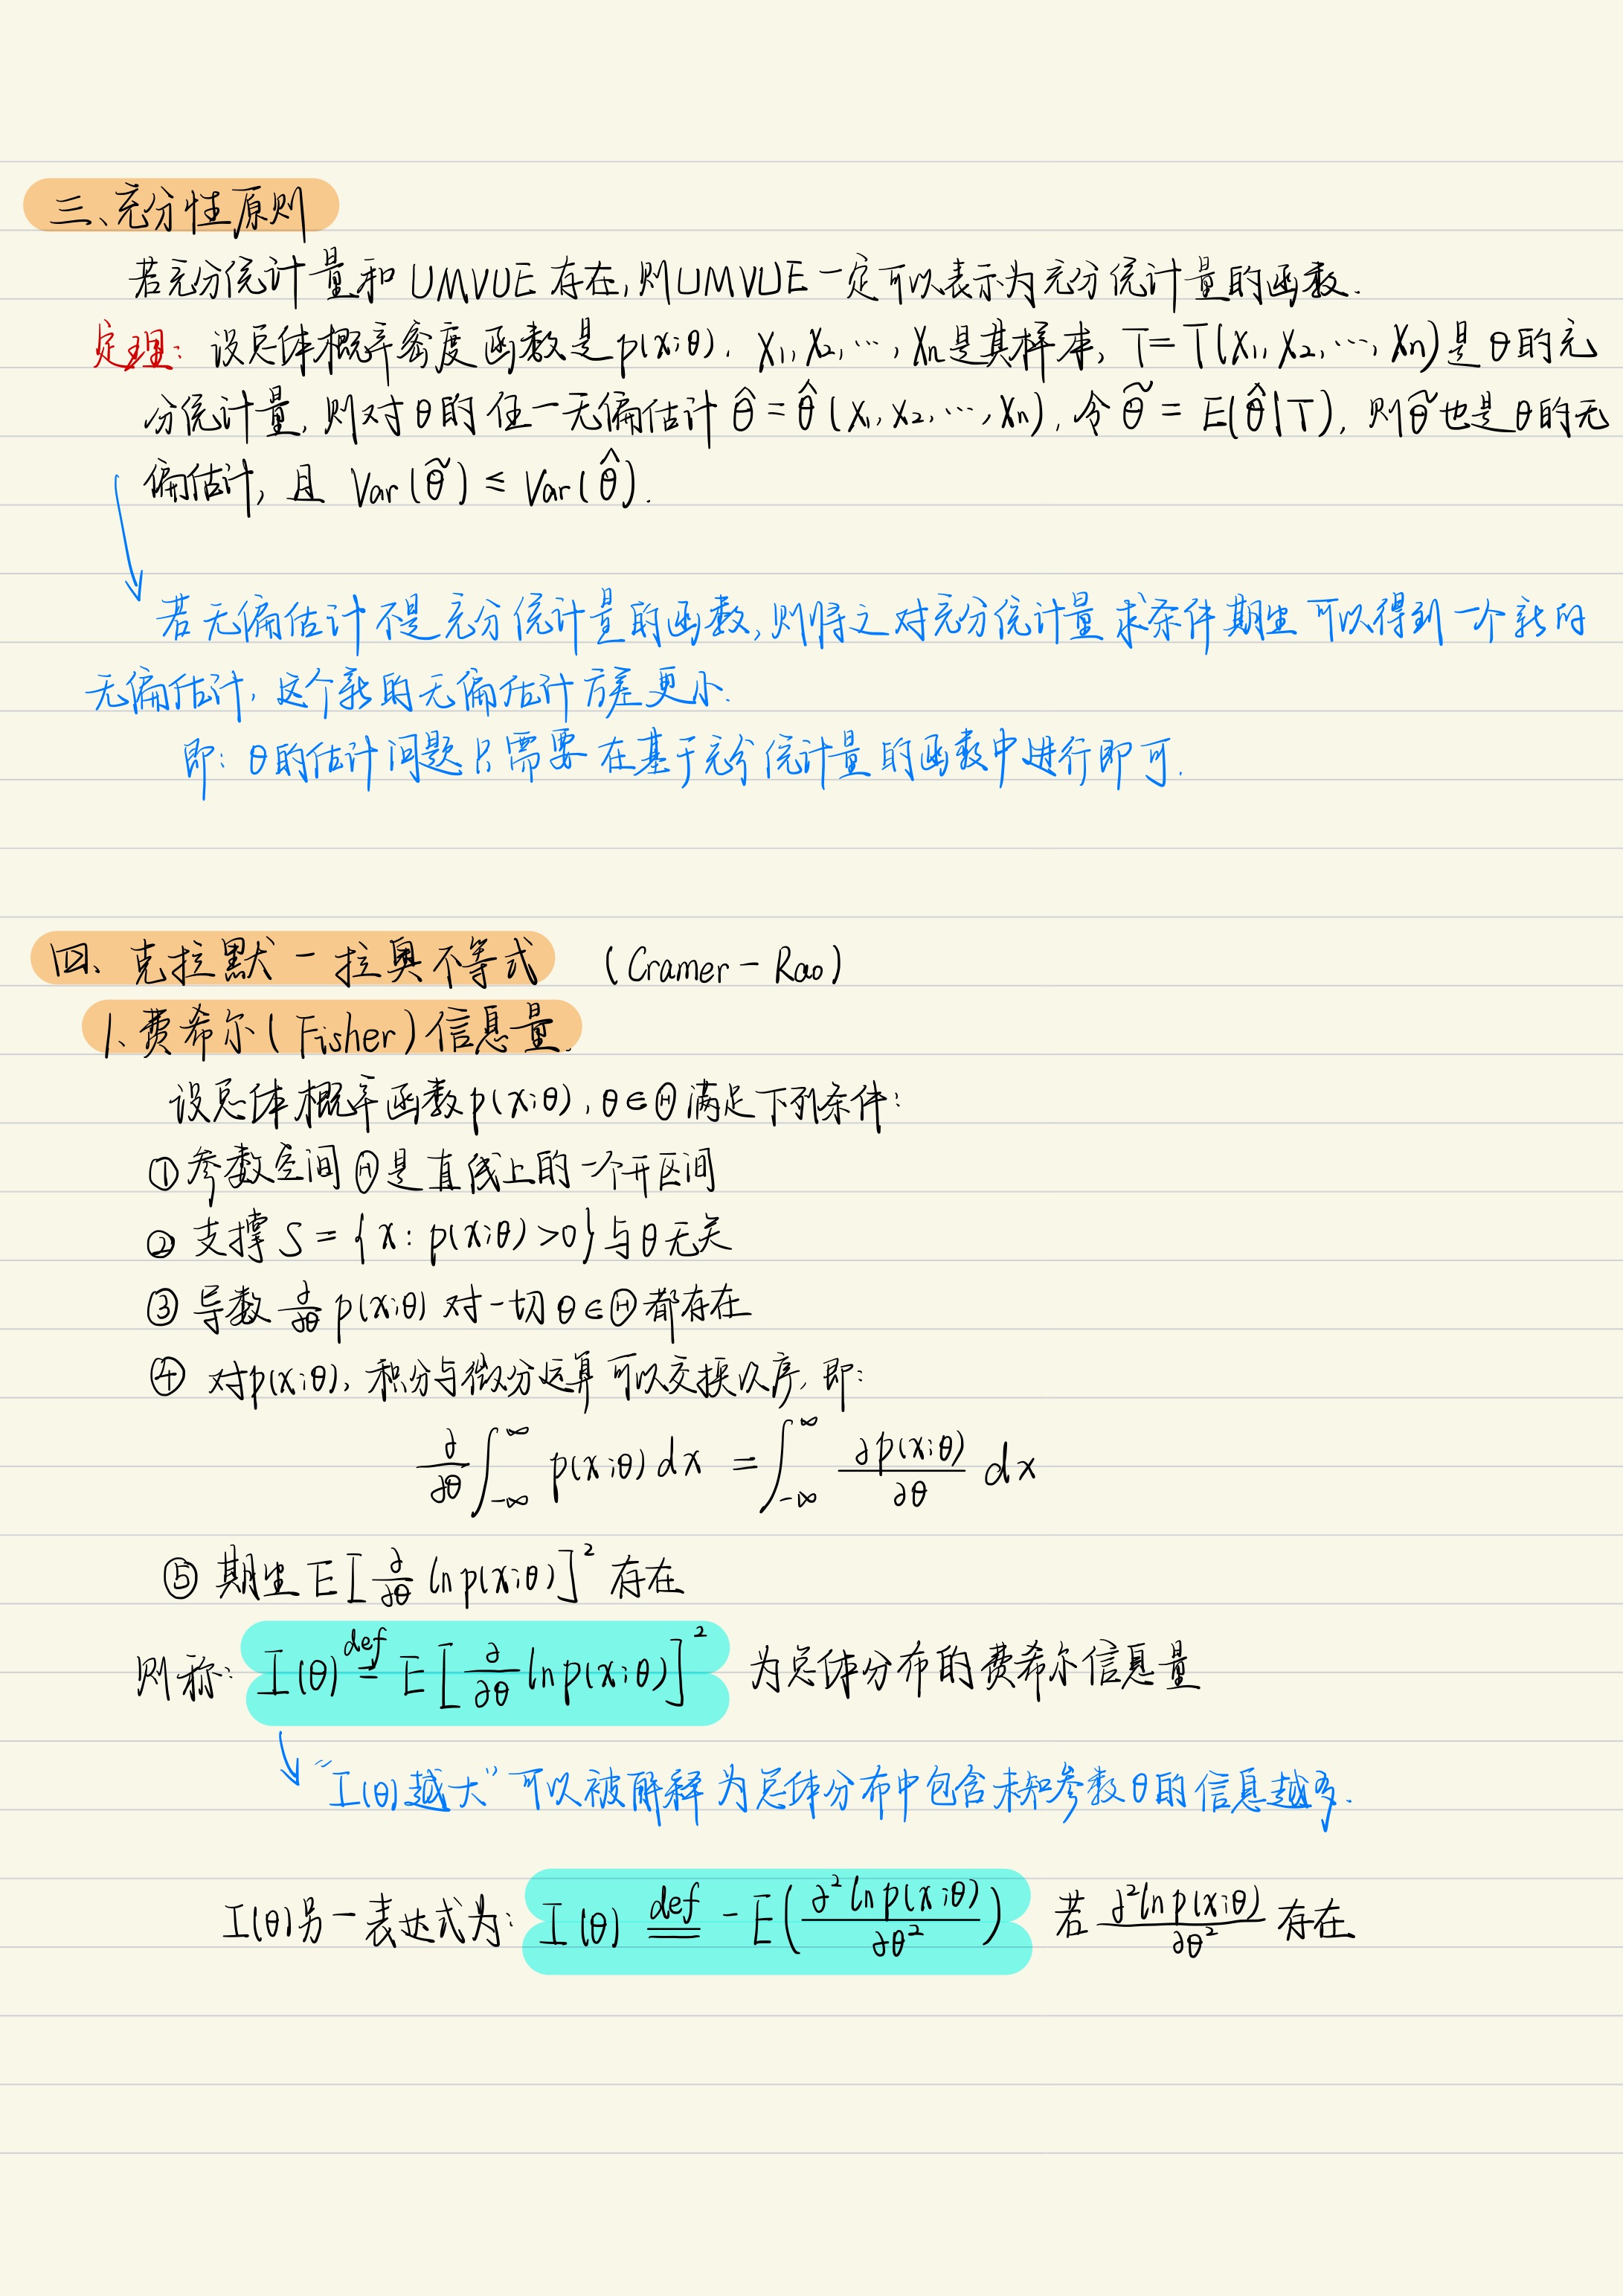 三、充分性原则
若充分统计量和 UMVUE 存在,则UMVUE 一定可以表示为充分统计量的函数.
定理: 设总体概率密度函数是 p(x;θ), X₁, X₂, ⋯, Xn是其样本, T = T(X₁, X₂, ⋯, Xn)是 θ 的充
分统计量, 则对 θ 的 任一无偏估计 θ̂ = θ̂ (X₁, X₂, ⋯, Xn), 令 θ̃ = E(θ̂|T), 则 θ̃ 也是 θ 的无
偏估计, 且 Var(θ̃) ≤ Var(θ̂).
若无偏估计不是充分统计量的函数,则将之对充分统计量求条件期望可以得到一个新的
无偏估计, 这个新的无偏估计方差更小.
即: θ的估计问题只需要在基于充分统计量的函数中进行即可.
四、克拉默-拉奥不等式 (Cramer-Rao)
1.费希尔(Fisher)信息量.
设总体概率函数p(x;θ), θ∈Θ满足下列条件:
①参数空间Θ是直线上的一个开区间
② 支撑 S = {x: p(x;θ)>0}与θ无关
③ 导数 ∂/∂θ p(x;θ) 对一切 θ∈Θ都存在
④ 对p(x;θ), 积分与微分运算可以交换次序, 即:
∂/∂θ ∫_{-∞}^{∞} p(x;θ)dx = ∫_{-∞}^{∞} ∂p(x;θ)/∂θ dx
⑤ 期望 E[∂/∂θ ln p(x;θ)]² 存在
则称: I(θ) def= E[∂/∂θ ln p(x;θ)]² 为总体分布的费希尔信息量
“I(θ)越大”可以被解释为总体分布中包含未知参数θ的信息越多.
I(θ)另一表达式为: I(θ) def= -E(∂² ln p(x;θ)/∂θ²) 若 ∂² ln p(x;θ)/∂θ² 存在